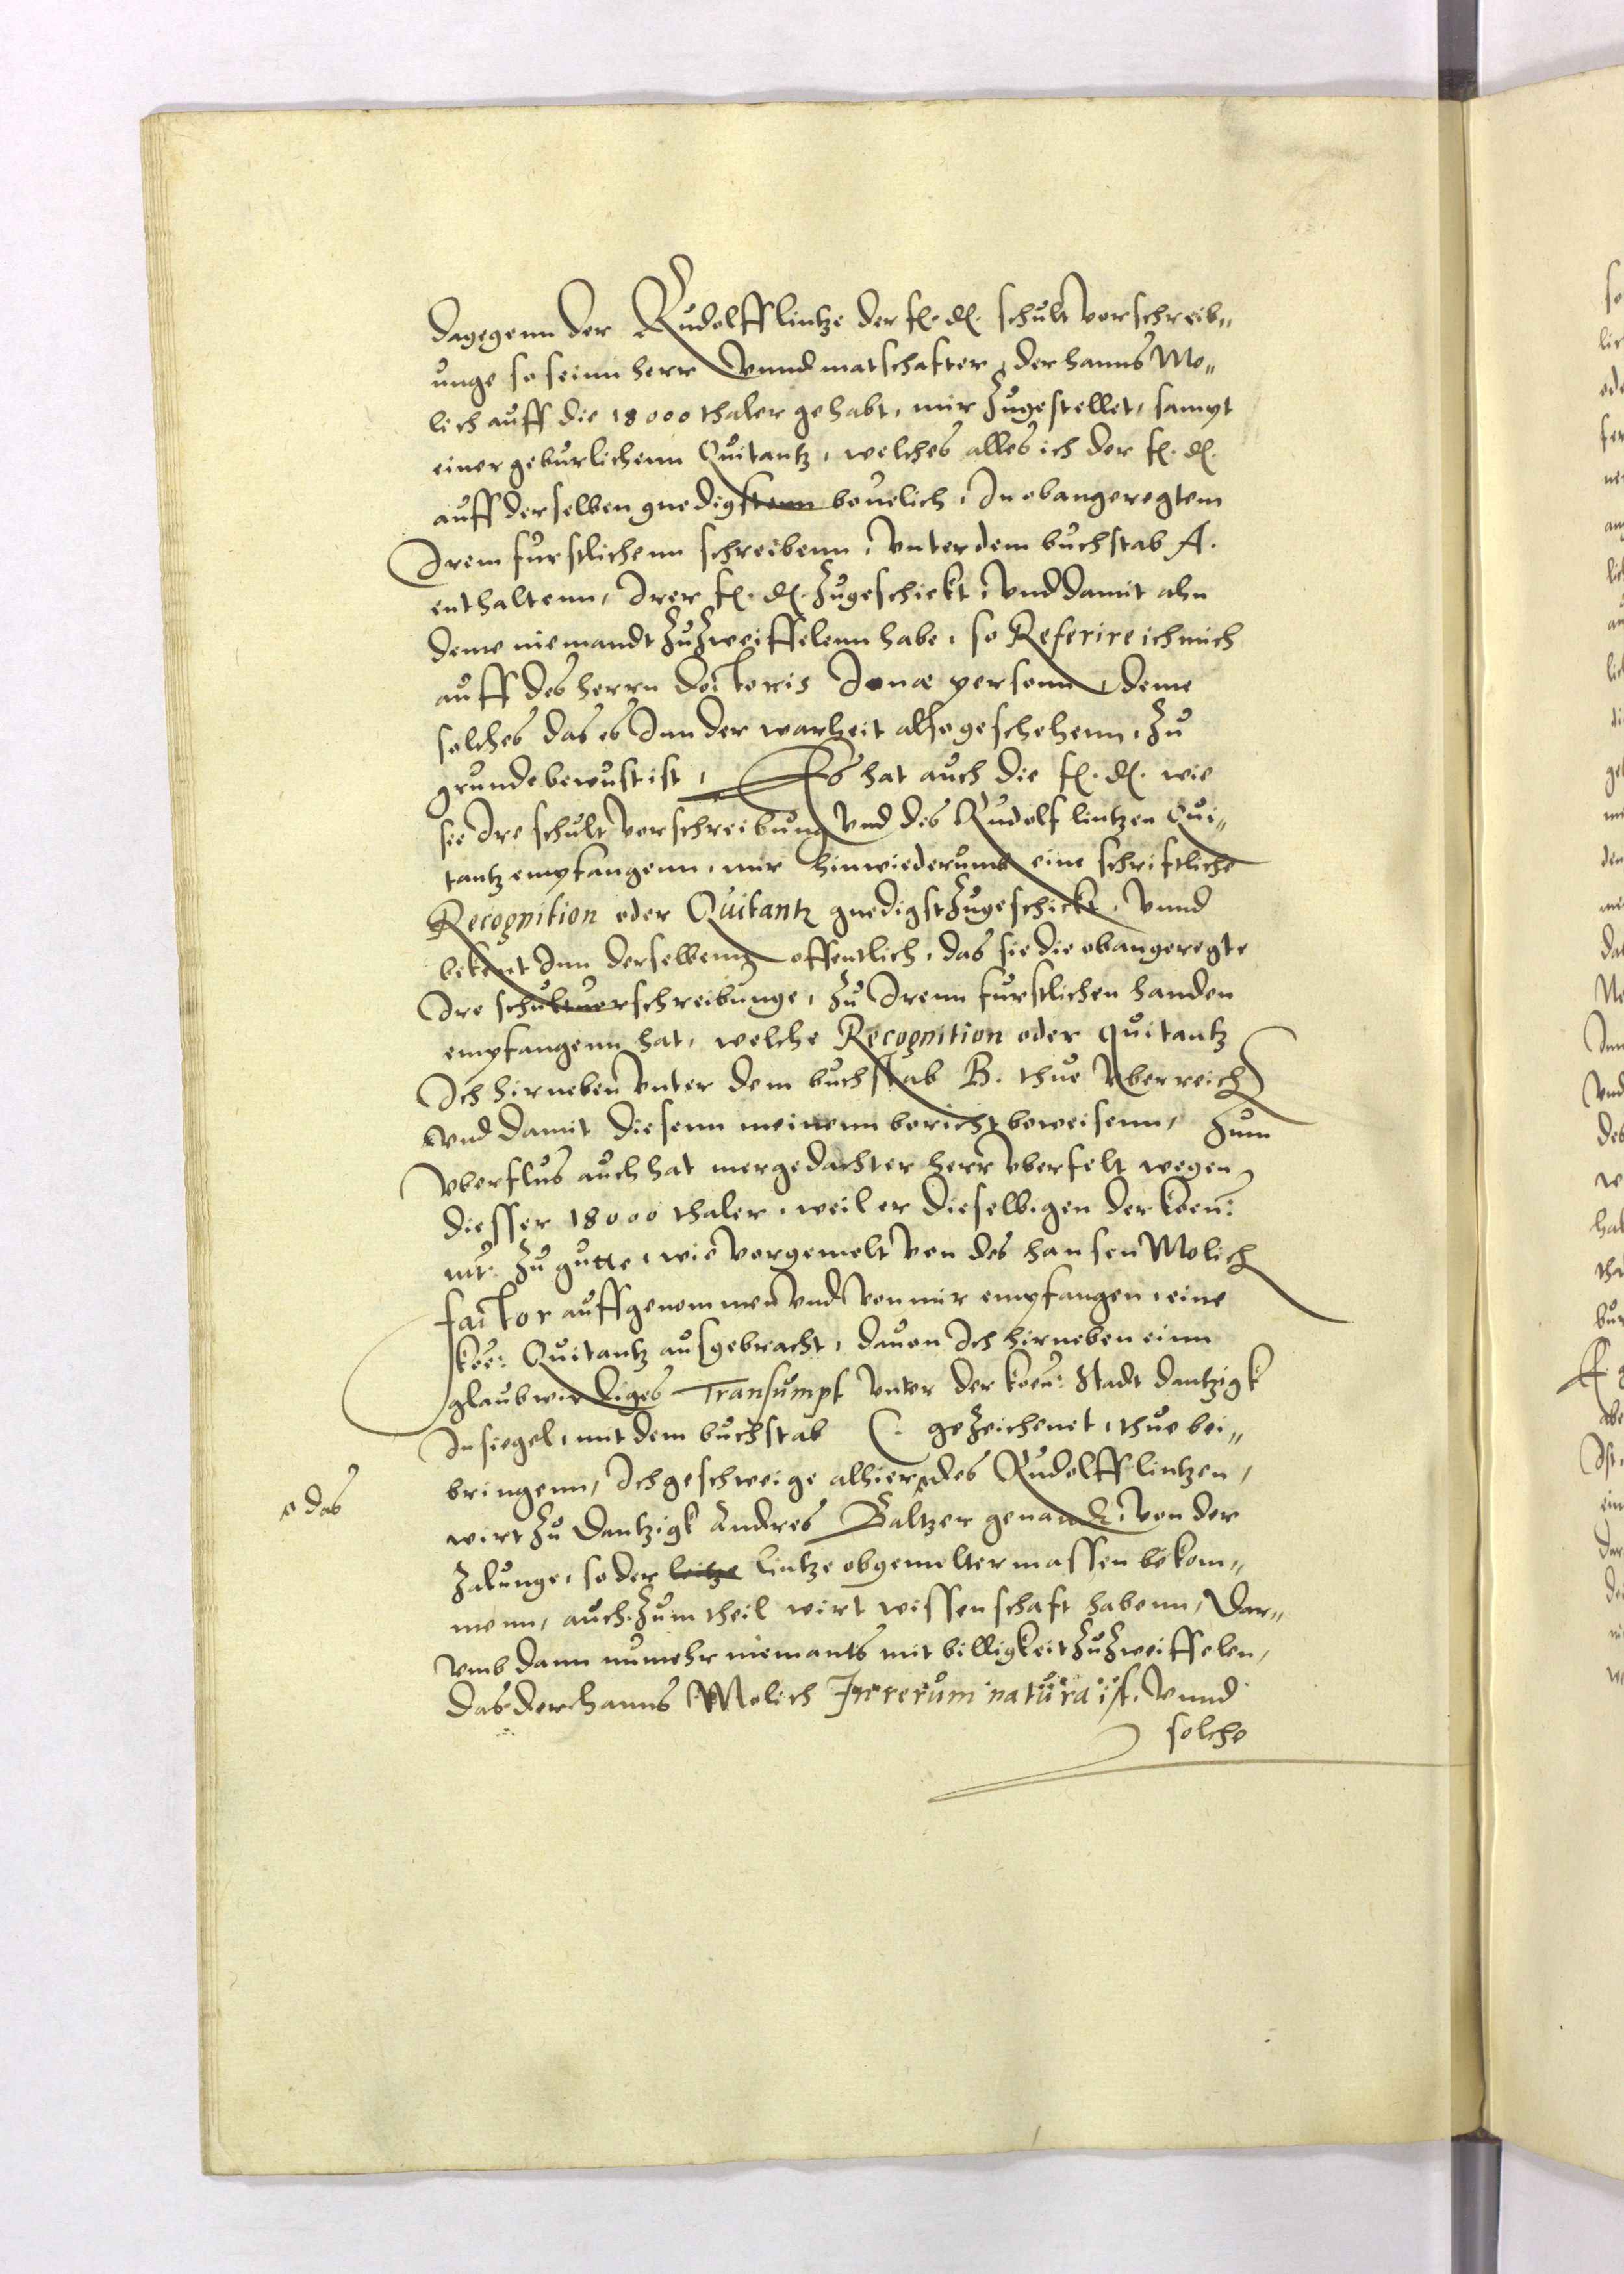 dagegenn der Rudolff lintze der f. d. schult vorschreib„
unge so seinn herr vnnd matschafter, der hanns Mo„
lich auff die 18000 thaler gehabt, mir zugestellet, sampt
einer geburlichenn Quitantz, welches alles ich der f. d.
auff derselben gnedigstenn beuelich, In obangeregtem
Irem furstlichenn schreibenn, vnter dem buchstab A.
enthaltenn, Irer f. d. zugeschickt, vnd damit ahn
deme niemandt zu zweiffelenn habe, so Referire ich mich
auff des herrn doctoris Jonæ personn, deme
solches das es Inn der warheit also geschehenn, zu
grunde bewust ist, Es hat auch die f. d. wie
sie Ire schult vorschreibung vnd des Rudolf lintzen Qui„
tantz empfangenn, mir hinwiederumb eine schriftliche
Recognition oder Quitantz gnedigst zugeschickt, vnnd
bekent Inn derselbenn offentlich, das sie die obangeregte
Ire schultuerschreibunge, zu Irenn furstlichen handen
empfangenn hat, welche Recognition oder quitantz
Ich hirneben vnter dem buchstab B. thue vberreich
vnd damit diesenn meinenn bericht beweisenn, zum
vberflus auch hat mergedachter herr vberfelt wegen
diesser 18000 thaler, weil er dieselbigen der koen:
mt: zu gutte, wie vorgemelt von des hansen Molich
factor auffgenommen vnd von mir empfangen, eine
koe: Quitantz ausgebracht, dauon Ich hirneben einn
glaubwirdiges Transumpt vnter der koen: Stadt dantzigk
Insiegel, mit dem buchstab C. gezeichenet, thue bei„
bringenn, Ich geschweige alhier des Rudolff lintzen,
das
wirt zu dantzigk Andres Baltzer genandt, von der
zalunge, so der leitze lintze obgemelter massen bekom„
menn, auch zum theil wirt wissenschaft habenn, Dar„
vmb dann numehr niemants mit billigkeit zu zweiffelen,
das der hanns Molich In rerum natura ist, vnnd
solche